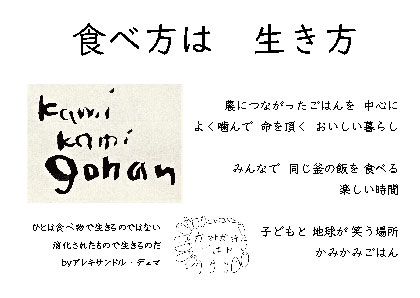 食べ方は 生き方
kami
kami
gohan
農につながったごはんを 中心に
よく噛んで 命を頂く おいしい暮らし
みんなで 同じ釜の飯を 食べる
楽しい時間
ひとは食べ物で生きるのではない
消化されたもので生きるのだ
byアレキサンドル・デュマ
子どもと 地球が 笑う場所
かみかみごはん